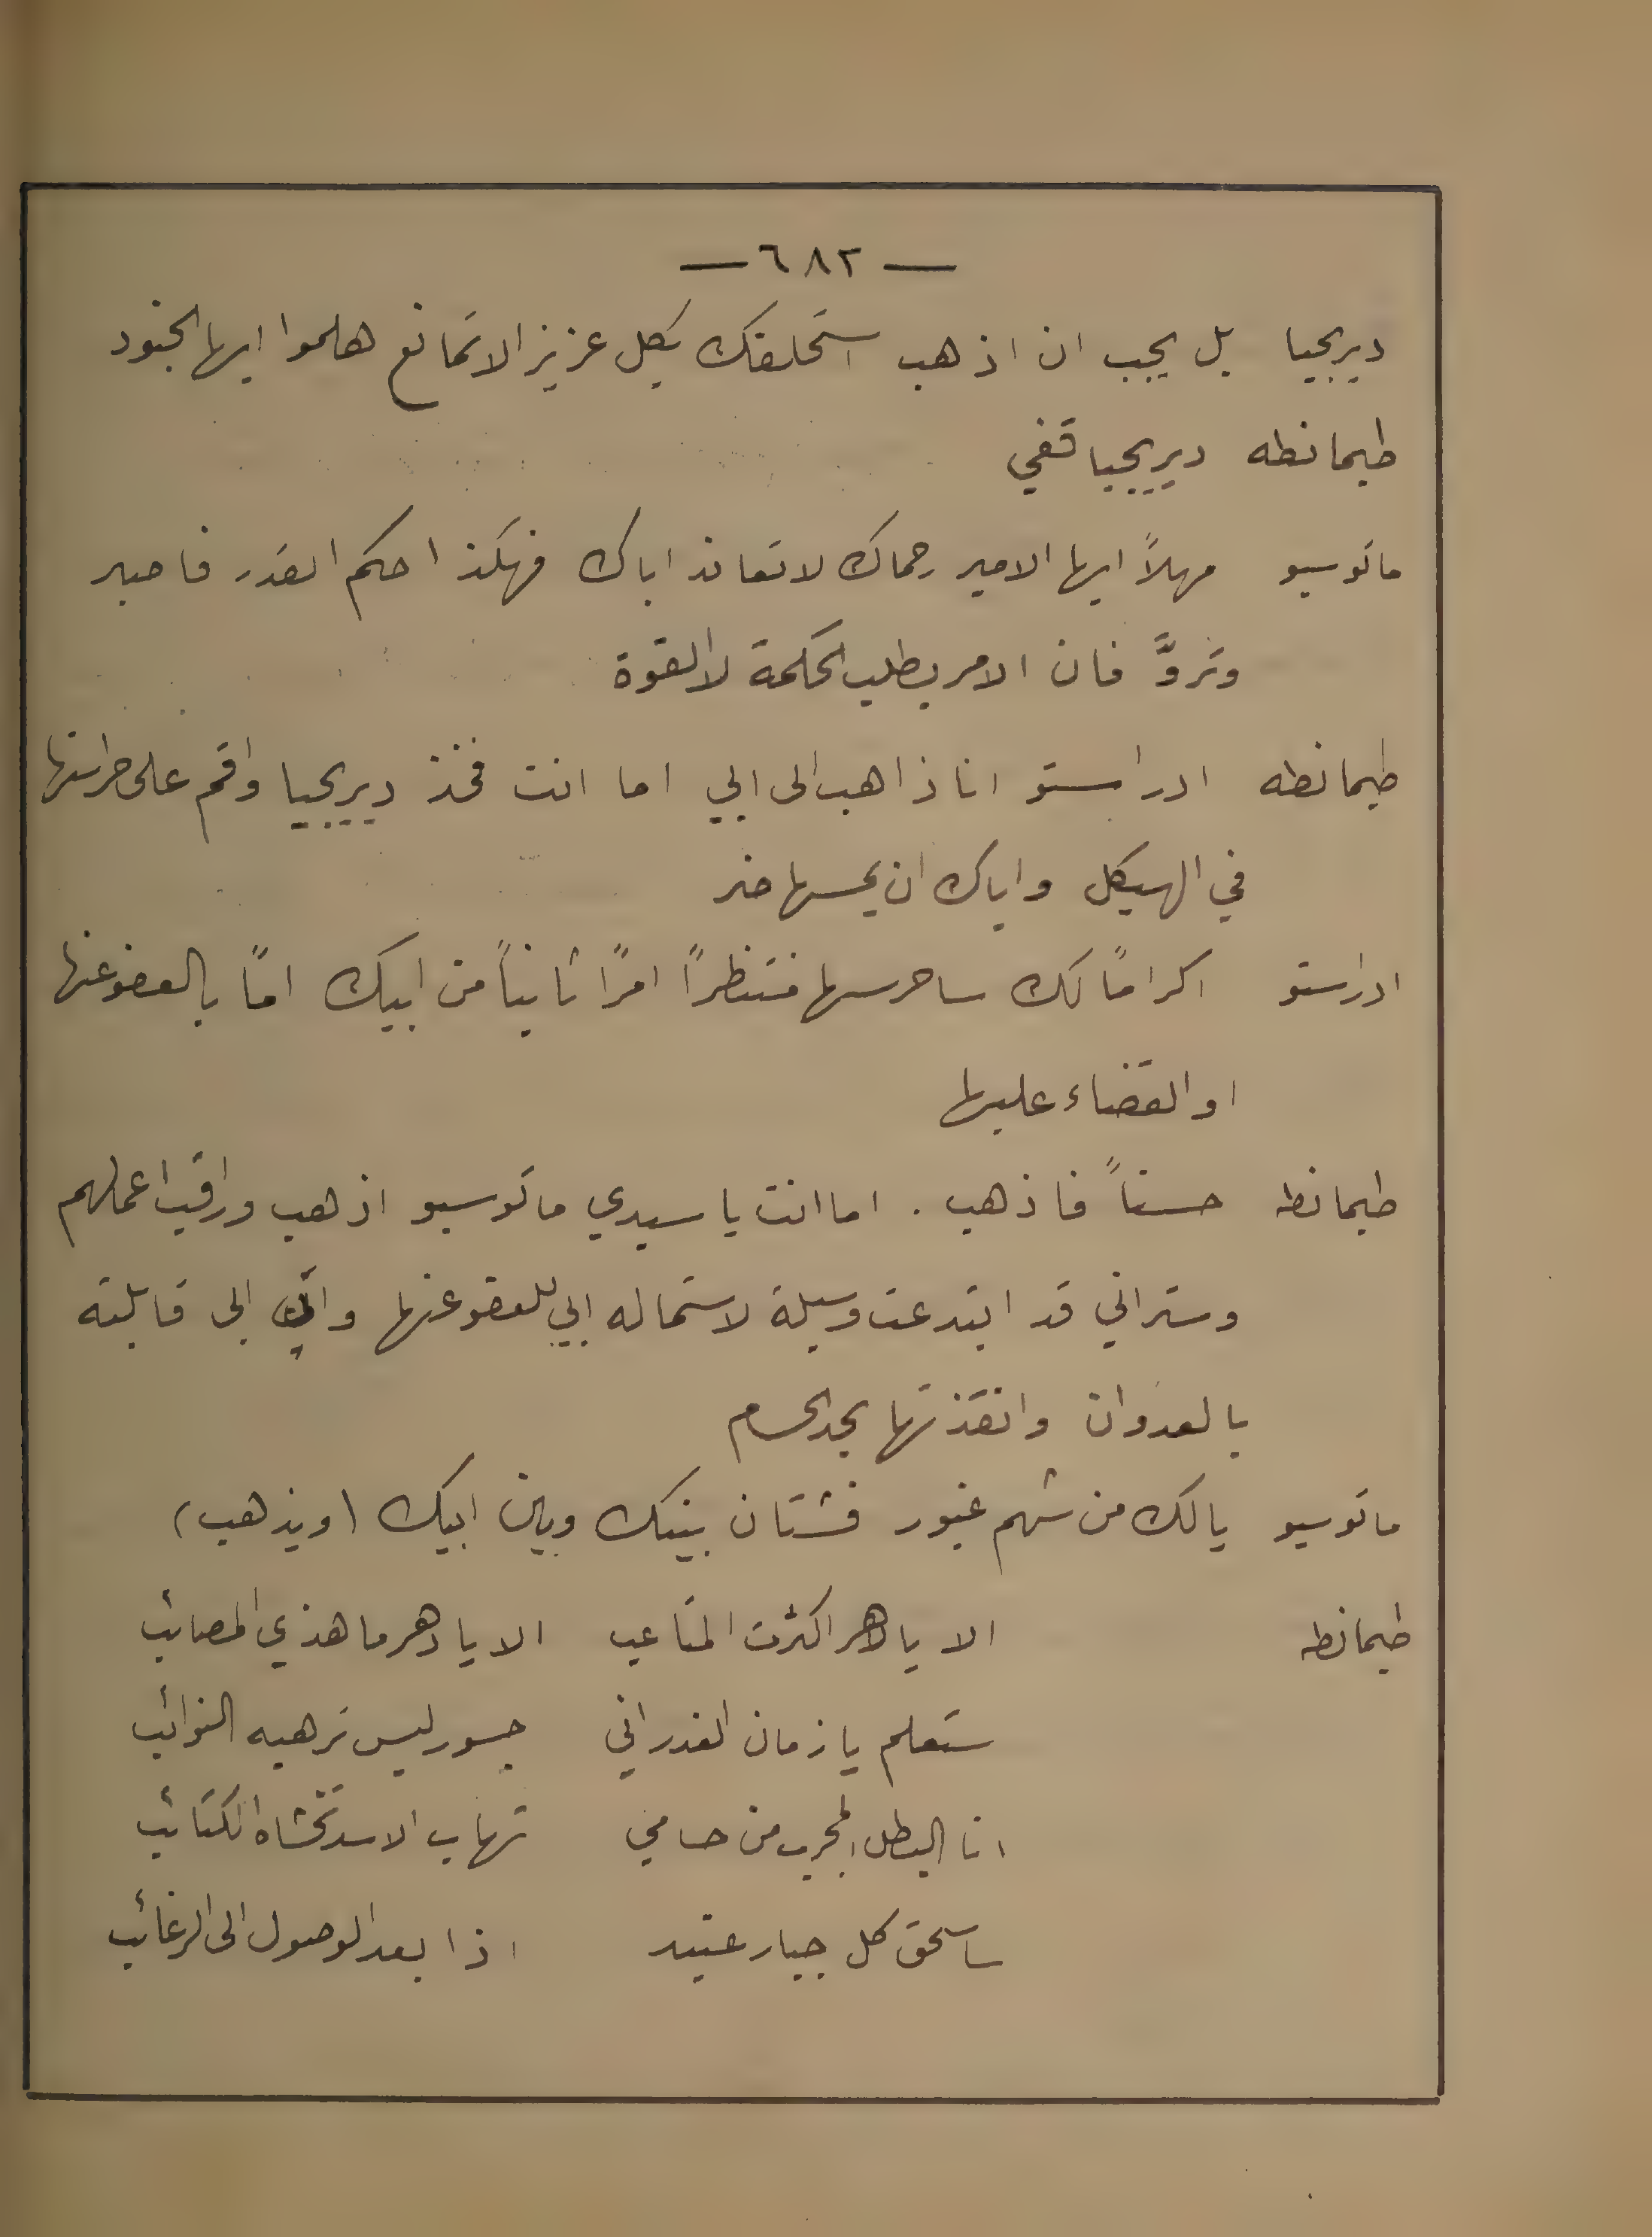 — ٦٨٢ —
ديريجيا بل يجب ان اذهب استحلفك بكل عزيز الا تمانع هلموا ايها الجنود
طيمانطه ديريجيا قفي
ماتوسيو مهلاً ايها الامير رحماك لا تعاند اباك فهكذا حكم القدر فاصبر
وتروَّ فان الامر يطلب الحكمة لا القوة
طيمانطه ادراستو انا ذاهب الى ابي اما انت فخذ ديريجيا واقم على حراستها
في الهيكل واياك ان يمسها ضر
ادراستو اكرامًا لك ساحرسها منتظرًا امرًا ثانيًا من ابيك امّا بالعفو عنها
او القضاء عليها
طيمانطه حسنًا فاذهب . اما انت يا سيدي ماتوسيو اذهب وراقب اعمالهم
وستراني قد ابتدعت وسيلة لاستماله ابي للعفو عنها وان ابى قابلته
بالعدوان وانقذتها بحد الحسام
ماتوسيو يا لك من شهم غيور فشتان بينك وبين ابيك (ويذهب)
طيمانطه الا يا دهر اكثرت المتاعب الا يا دهر ما هذي المصائب
ستعلم يا زمان الغدر اني جسور ليس ترهبه النوائب
انا البطل المجرب من حسامي تهاب الاسد تخشاه الكتائب
ساسحق كل جبار عنيد اذا بعد الوصول الى الرغائب